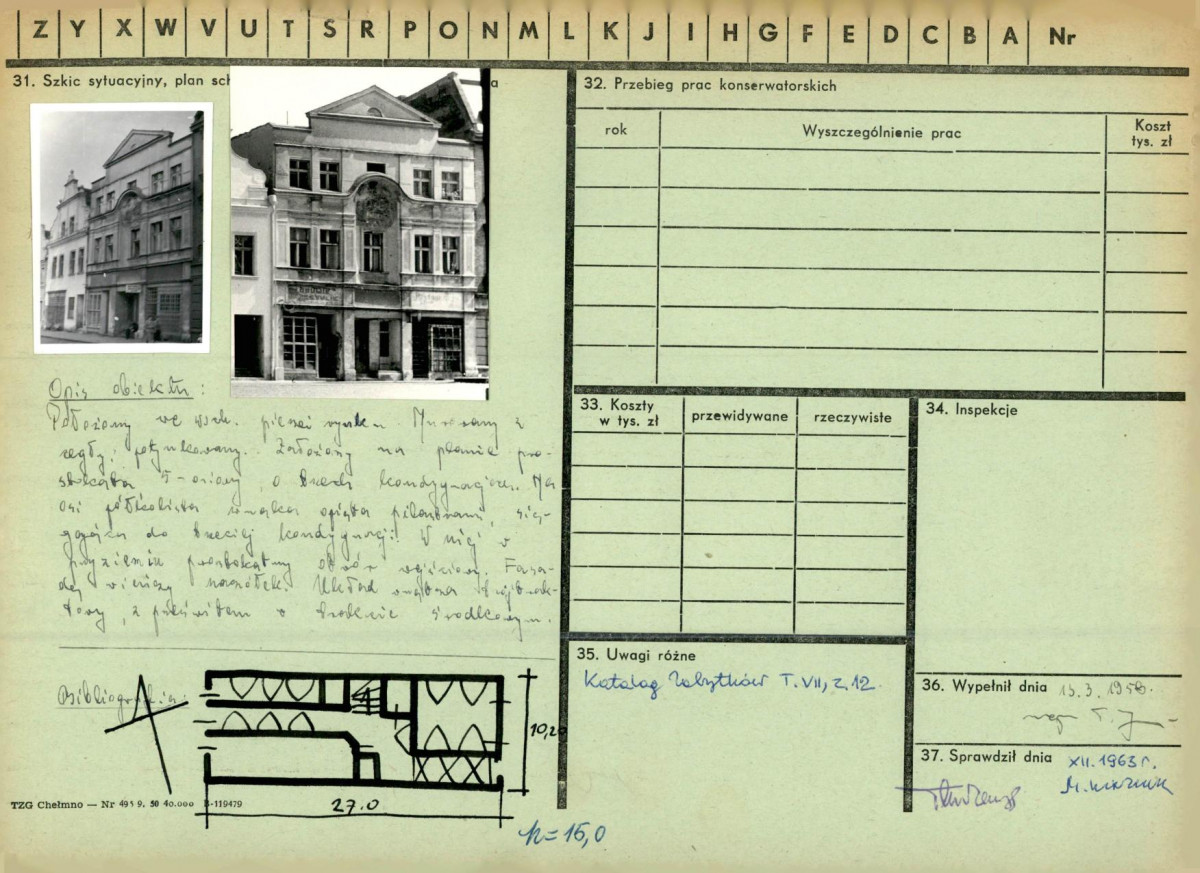 Z Y X W V U T S R P O N M L K J I H G F E D C B A Nr
31. Szkic sytuacyjny, plan sch a
32. Przebieg prac konserwatorskich
rok Wyszczególnienie prac Koszt tys. zł
Opis obiektu:
Położony we wsch. pierzei rynku. Murowany z
cegły, potynkowany. Założony na planie pro-
stokąta 5-osiowy, o trzech kondygnacjach. Na
osi półkolista wnęka opięta pilastrami, się-
gająca do trzeciej kondygnacji. W niej w
przyziemiu prostokątny otwór wejściowy. Fasa-
dę wieńczy naczółek. Układ wnętrza trójtrak-
towy, z prześwitem w trakcie środkowym.
Bibliografia:
10,20
27.0
h=15,0
TZG Chełmno — Nr 40.000 B-119479
33. Koszty w tys. zł przewidywane rzeczywiste
34. Inspekcje
35. Uwagi różne
Katalog Zabytków T. VII, z. 12
36. Wypełnił dnia 13.3.1956.
mgr T.
37. Sprawdził dnia XII. 1963 r.